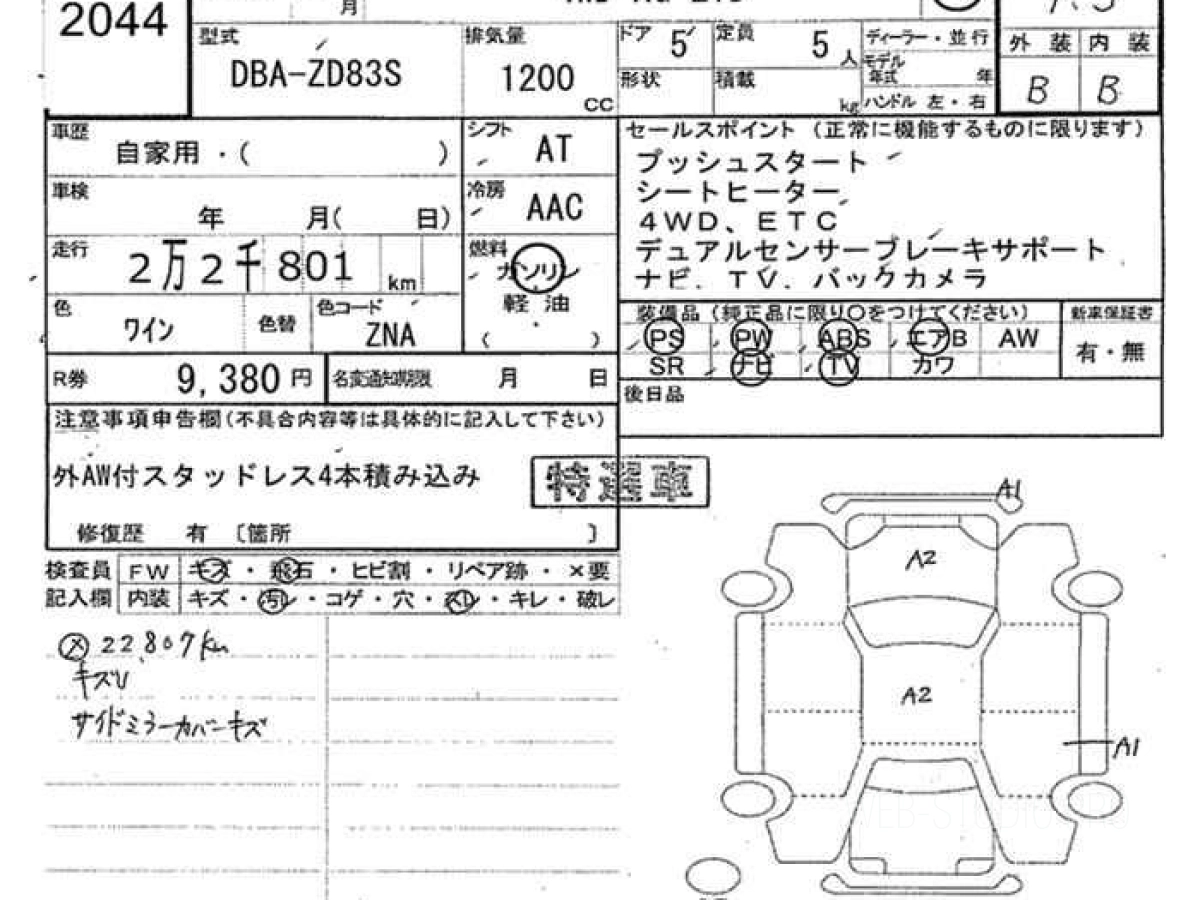 2044
月
型式
DBA-ZD83S
排気量
1200
CC
ドア
5
定員
5
人
ディーラー・並行
モデル
年式
年
形状
積載
kg
ハンドル 左・右
外 装
内 装
B
B
車歴
自家用 ・(   )
シフト
AT
車検
年 月( 日)
冷房
AAC
走行
2万2千801
km
燃料
ガソリン
軽 油
(   )
色
ワイン
色替
色コード
ZNA
R券
9,380 円
名変通知期限
月 日
セールスポイント (正常に機能するものに限ります)
プッシュスタート
シートヒーター
4WD、ETC
デュアルセンサーブレーキサポート
ナビ、TV、バックカメラ
装備品(純正品に限り○をつけてください)
新車保証書
PS
PW
ABS
エアB
AW
有・無
SR
ナビ
TV
カワ
後日品
注意事項申告欄(不具合内容等は具体的に記入して下さい)
外AW付スタッドレス4本積み込み
特選車
修復歴 有 〔箇所 〕
検査員
記入欄
FW
キズ・飛石・ヒビ割・リペア跡・×要
内装
キズ・汚レ・コゲ・穴・スレ・キレ・破レ
22,807km
キズU
サイドミラーカバーキズ
A1
A2
A2
A1